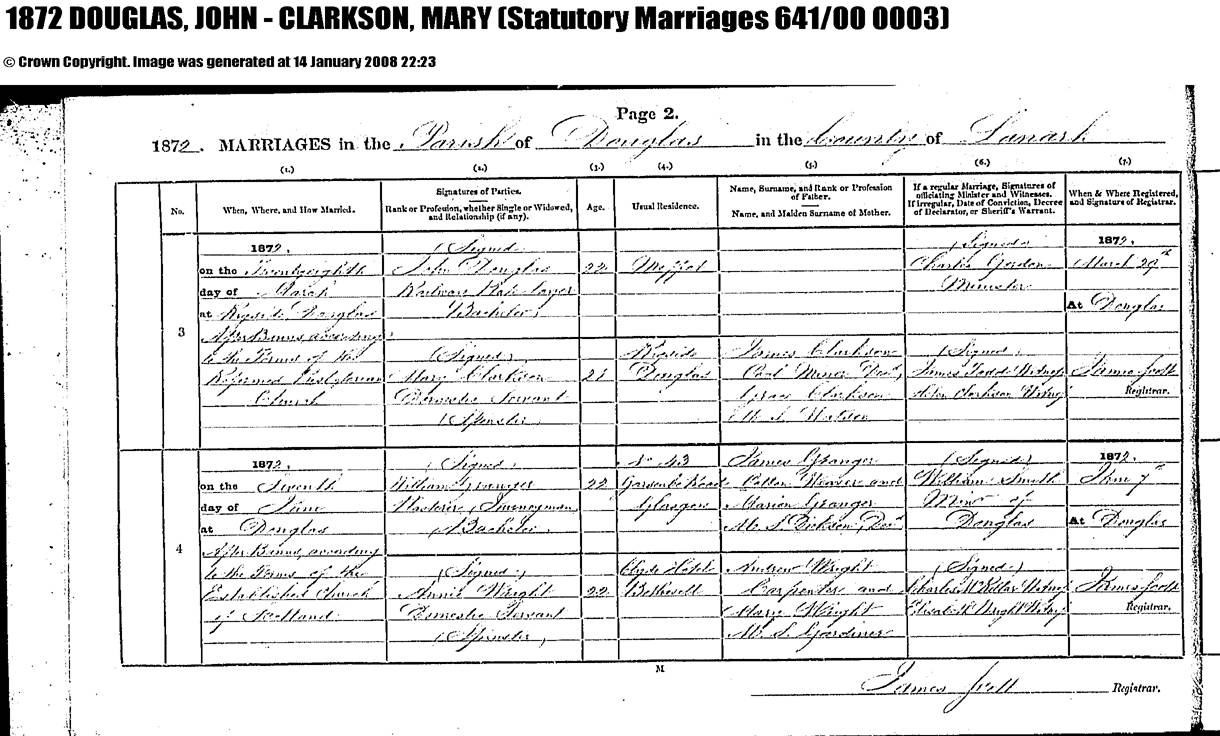 1872 DOUGLAS, JOHN - CLARKSON, MARY (Statutory Marriages 641/00 0003)
© Crown Copyright. Image was generated at 14 January 2008 22:23
Page 2.
1872. MARRIAGES in the Parish of Douglas in the County of Lanark
(1.) (2.) (3.) (4.) (5.) (6.) (7.)
No.
When, Where, and How Married.
Signatures of Parties.
Rank or Profession, whether Single or Widowed,
and Relationship (if any).
Age.
Usual Residence.
Name, Surname, and Rank or Profession
of Father.
Name, and Maiden Surname of Mother.
If a regular Marriage, Signatures of
officiating Minister and Witnesses.
If Irregular, Date of Conviction, Decree
of Declarator, or Sheriff's Warrant.
When & Where Registered,
and Signature of Registrar.
3
1872,
on the Twentyeighth
day of March
at Douglas
After Banns, according
to the Forms of the
Reformed Presbyterian
Church
(Signed)
John Douglas
Railway
Bachelor
(Signed)
Mary Clarkson
Domestic Servant
(Spinster)
22
Moffat
Douglas
James Clarkson
Coal Miner
Grace Clarkson
M. S.
(Signed)
Charles Gordon
Minister
(Signed)
James Witness
Clarkson Witness
1872,
March 29th
At Douglas
James
Registrar.
4
1872,
on the Seventh
day of June
at Douglas
After Banns, according
to the Forms of the
Established Church
of Scotland
(Signed)
William Granger
Journeyman
(Bachelor)
(Signed)
Annie Wright
Domestic Servant
(Spinster)
22
22
No 43
Road
Glasgow
Clyde Hotel
Bothwell
James Granger
Cotton Weaver and
Marion Granger
M. S. Dickson, Decd
Andrew Wright
Carpenter and
Mary Wright
M. S. Gardiner
(Signed)
William Smith
Minr of
Douglas
(Signed)
Charles McKellar Witness
Elizabeth Wright Witness
1872,
June 7th
At Douglas
James
Registrar.
M
James
Registrar.